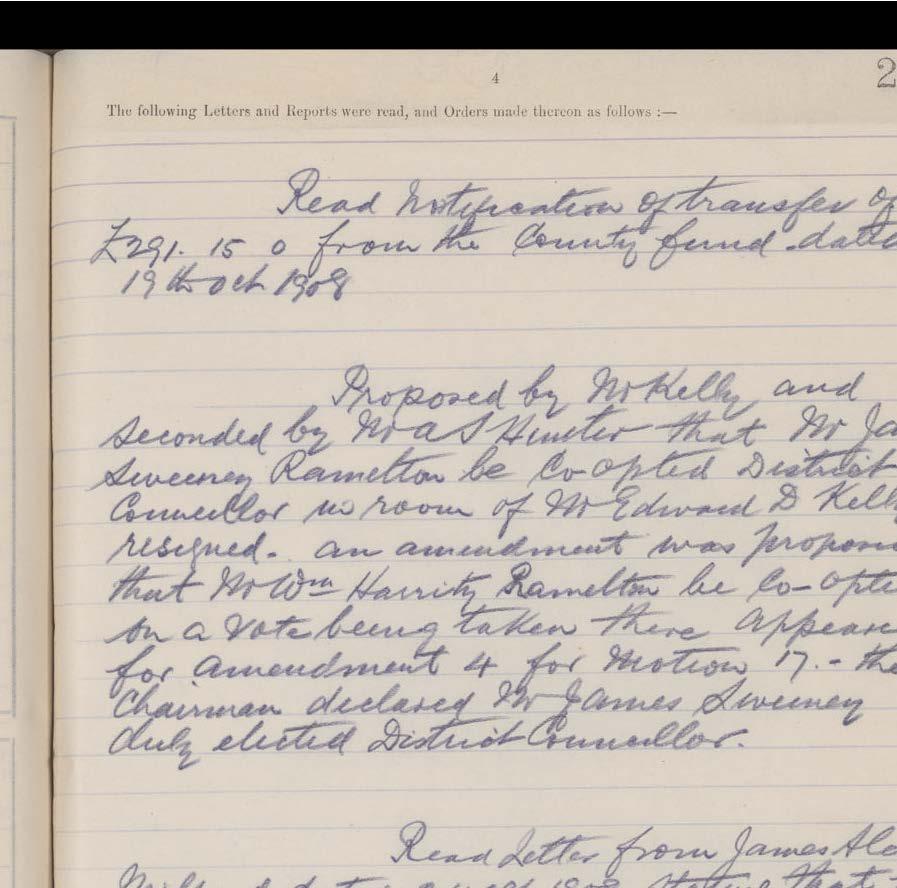 4
2
The following Letters and Reports were read, and Orders made thereon as follows :—
Read Notification of transfer of
£291. 15 0 from the County fund dated
19th Oct 1908
Proposed by Mr Kelly and
seconded by Mr A S Hunter that Mr Ja
Sweeney Ramelton be Co opted District
Councillor in room of Mr Edward D Kelly
resigned. an amendment was propos
that Mr Wm Harrity Ramelton be Co-opte
on a Vote being taken there appeare
for amendment 4 for Motion 17. - the
Chairman declared Mr James Sweeney
duly elected District Councillor.
Read Letter from James